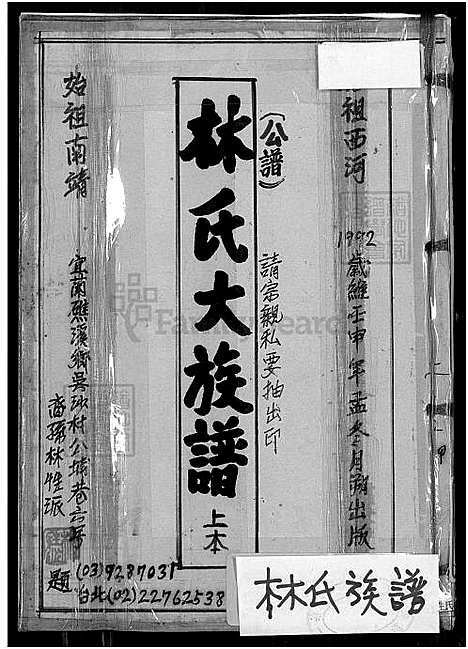 祖西河
1992歲維壬申年孟冬月朔出版
(公譜)
請宗親私要抽出印
林氏大族譜
上本
始祖南靖
宜蘭礁溪鄉吳沙村公墩巷六號
裔孫林性派
題
(03)9287031
台北(02)22762538
林氏族譜
FamilySearch